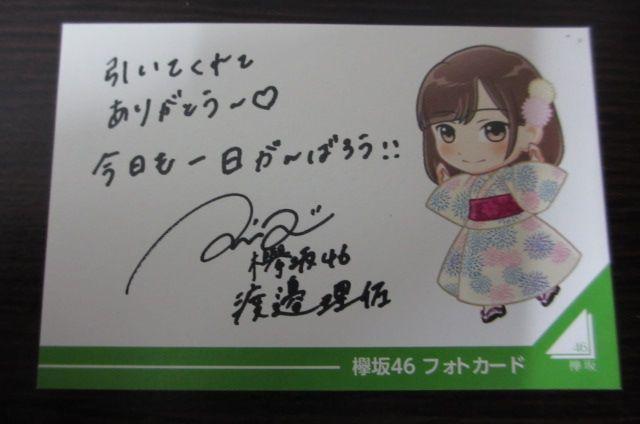 引いてくれて
ありがとう～♡
今日も一日がんばろう!!
欅坂46
渡邉理佐
欅坂46 フォトカード
46
欅坂